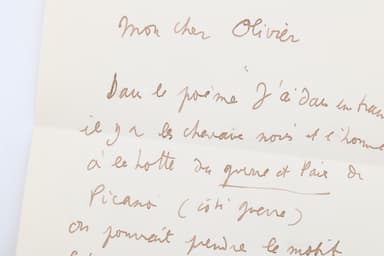 Mon cher Olivier
Dans le poème J'ai dans en
il y a les chevaux noirs et l'homme
à la hotte du guerre et Paix de
Picasso (côté guerre)
on pourrait prendre le motif